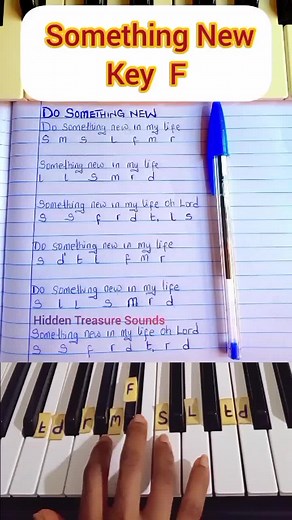 Something New
Key F
DO SOMETHING NEW
Do something new in my life
S m S L f m r
Something new in my life
L L S m r d
Something new in my life oh Lord
S S f r d t, L S
Do something new in my life
S d' t L f m r
Do something new in my life
S L L S m r d
Hidden Treasure Sounds
Something new in my life oh Lord
S S f r d t, r d
F
t d r m S L t d